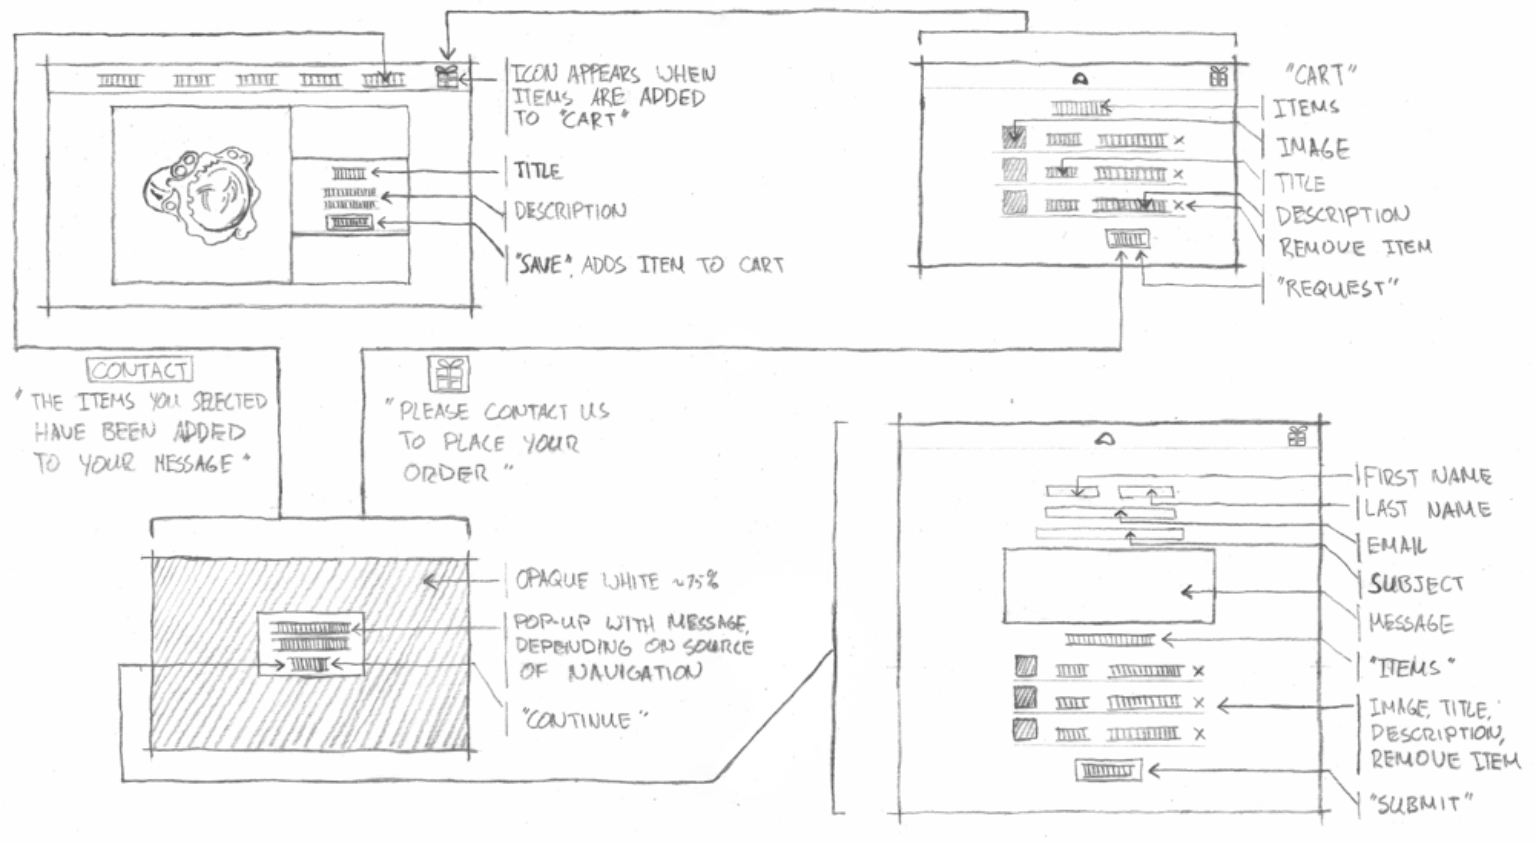 ICON APPEARS WHEN
ITEMS ARE ADDED
TO "CART"
TITLE
DESCRIPTION
"SAVE", ADDS ITEM TO CART
"CART"
ITEMS
IMAGE
TITLE
DESCRIPTION
REMOVE ITEM
"REQUEST"
CONTACT
"THE ITEMS YOU SELECTED
HAVE BEEN ADDED
TO YOUR MESSAGE"
"PLEASE CONTACT US
TO PLACE YOUR
ORDER"
OPAQUE WHITE ~75%
POP-UP WITH MESSAGE,
DEPENDING ON SOURCE
OF NAVIGATION
"CONTINUE"
FIRST NAME
LAST NAME
EMAIL
SUBJECT
MESSAGE
"ITEMS"
IMAGE, TITLE,
DESCRIPTION,
REMOVE ITEM
"SUBMIT"